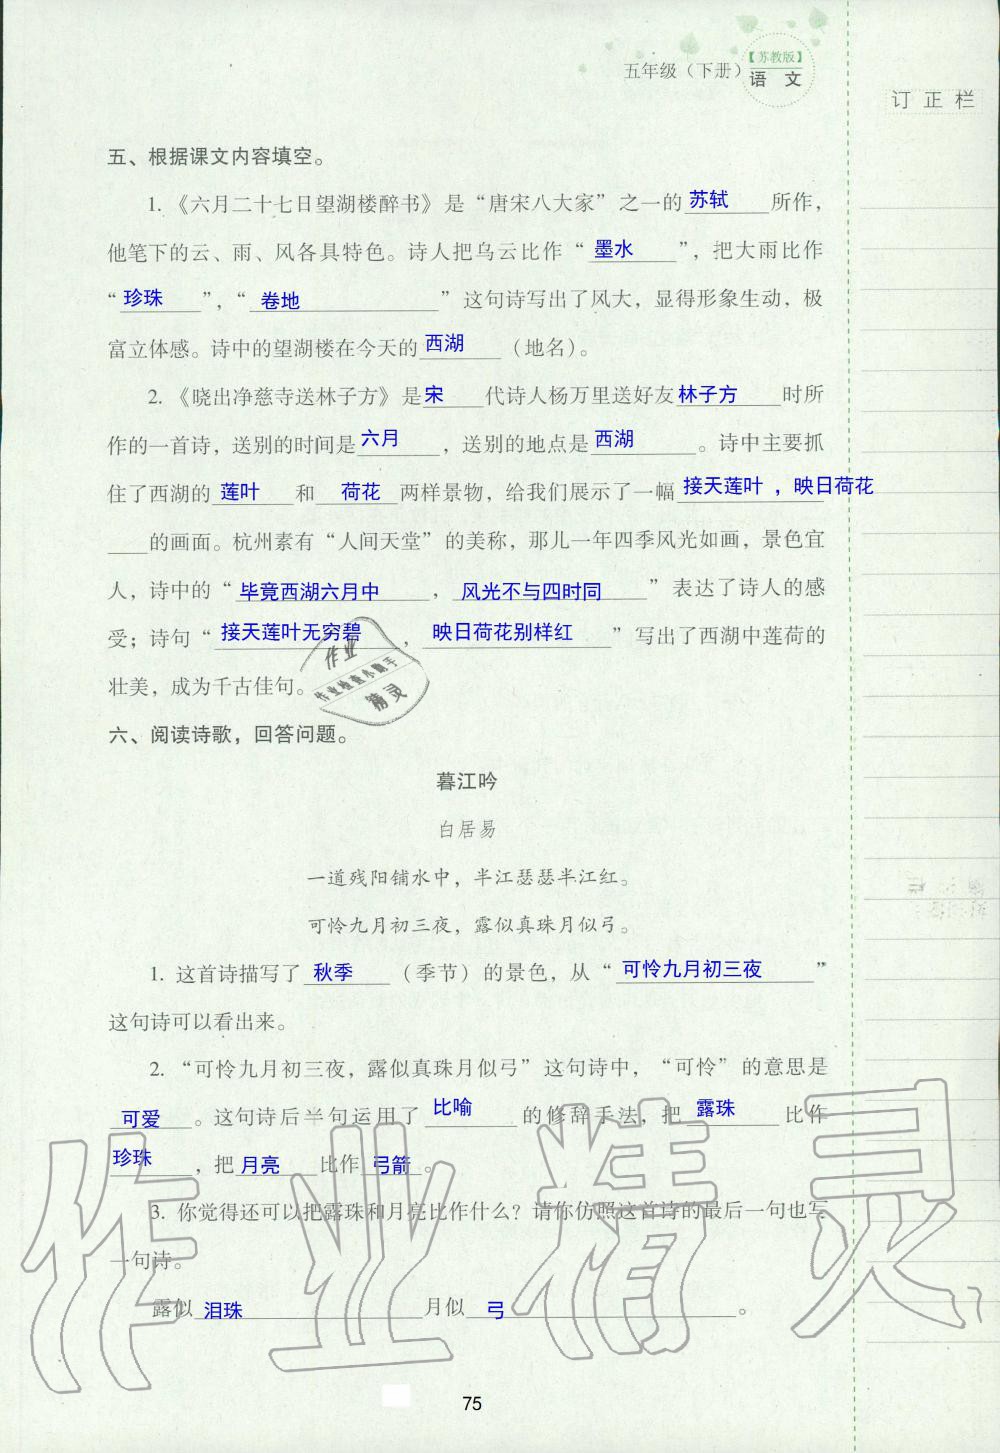 五年级（下册）
【苏教版】
语 文
订 正 栏
五、根据课文内容填空。
1. 《六月二十七日望湖楼醉书》是“唐宋八大家”之一的苏轼所作，
他笔下的云、雨、风各具特色。诗人把乌云比作“墨水”，把大雨比作
“珍珠”，“卷地”这句诗写出了风大，显得形象生动，极
富立体感。诗中的望湖楼在今天的西湖（地名）。
2. 《晓出净慈寺送林子方》是宋代诗人杨万里送好友林子方时所
作的一首诗，送别的时间是六月，送别的地点是西湖。诗中主要抓
住了西湖的莲叶和荷花两样景物，给我们展示了一幅接天莲叶，映日荷花
____的画面。杭州素有“人间天堂”的美称，那儿一年四季风光如画，景色宜
人，诗中的“毕竟西湖六月中，风光不与四时同”表达了诗人的感
受；诗句“接天莲叶无穷碧，映日荷花别样红”写出了西湖中莲荷的
壮美，成为千古佳句。
作业
作业检查小助手
精灵
六、阅读诗歌，回答问题。
暮江吟
白居易
一道残阳铺水中，半江瑟瑟半江红。
可怜九月初三夜，露似真珠月似弓。
1. 这首诗描写了秋季（季节）的景色，从“可怜九月初三夜”
这句诗可以看出来。
2. “可怜九月初三夜，露似真珠月似弓”这句诗中，“可怜”的意思是
可爱。这句诗后半句运用了比喻的修辞手法，把露珠比作
珍珠，把月亮比作弓箭。
3. 你觉得还可以把露珠和月亮比作什么？请你仿照这首诗的最后一句也写
一句诗。
露似泪珠月似弓。
作业精灵
75